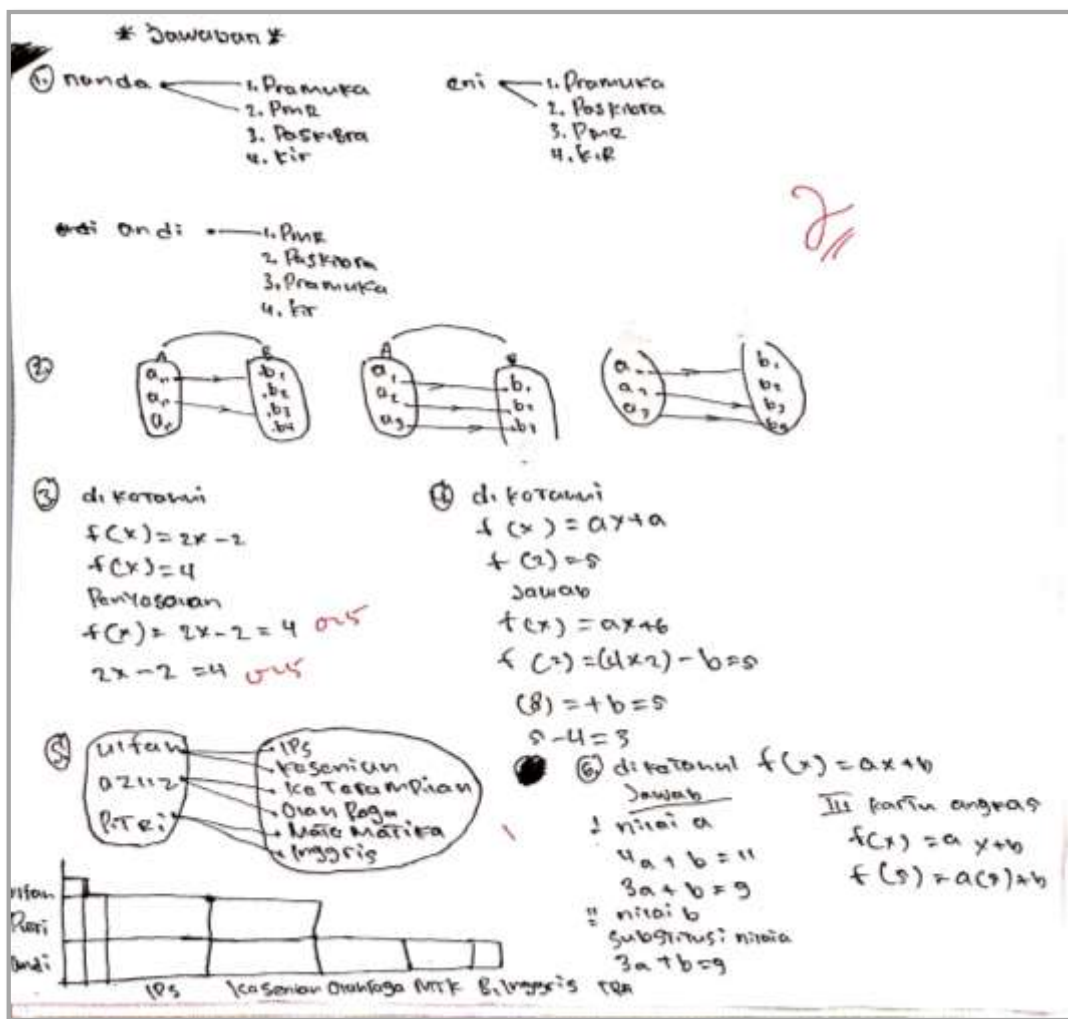 * Jawaban *
1. nanda
1. Pramuka
2. PMR
3. Paskibra
4. kir
eni
1. Pramuka
2. Paskibra
3. PMR
4. KIR
andi
1. PMR
2. Paskibra
3. Pramuka
4. kir
2.
A B
a₁ b₁
b₂
b₃
b₄
A B
a₁ b₁
a₂ b₂
a₃ b₃
b₁
b₂
b₃
3. diketahui
f(x) = 2x - 2
f(x) = 4
f(x) = 2x - 2 = 4
2x - 2 = 4
4. diketahui
f(x) = ax + a
f(2) = 5
Jawab
f(x) = ax + 6
f(2) = (4x2) - b = 5
(8) = + b = 5
5 - 4 = 3
5. ulfan
aziiz
PiTRi
IPS
Kesenian
KeTerampilan
Olah Raga
MateMatika
Inggris
ulfan
Pitri
andi
IPS Kesenian Olahraga MTK B. Inggris
6. diketahui f(x) = ax + b
Jawab
I nilai a
4a + b = 11
3a + b = 9
II nilai b
substitusi nilai a
3a + b = 9
III kartu angkas
f(x) = a x + b
f(5) = a(5) + b